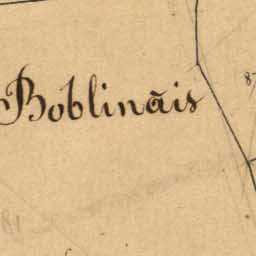 Boblinais
81